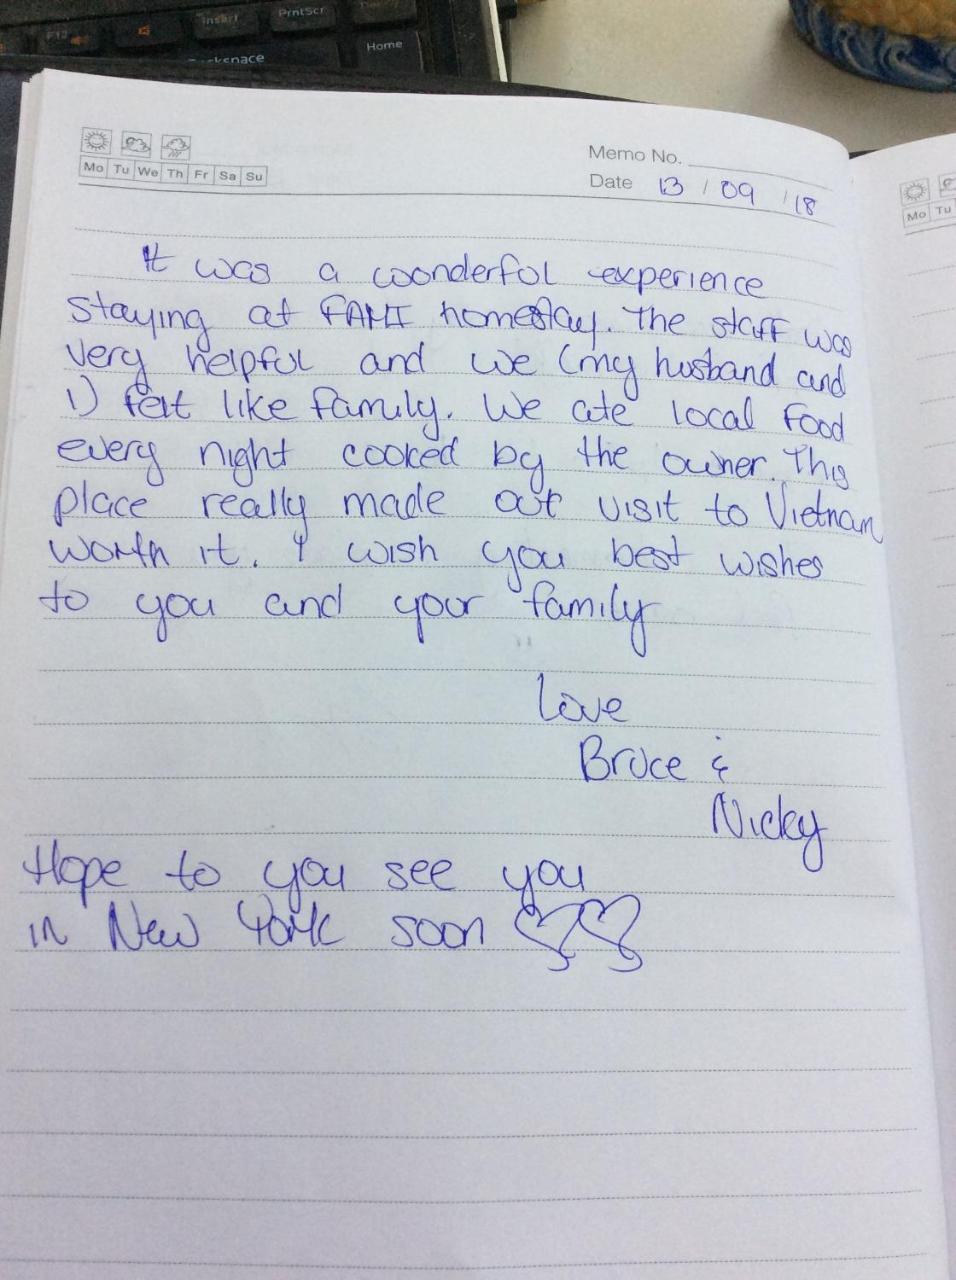 Insert
PrntScr
F12
Home
Backspace
Memo No.
Mo Tu We Th Fr Sa Su
Date 13 / 09 / 18
Mo Tu
It was a woonderful experience
staying at FAMI homestay. The staff was
very helpful and we (my husband and
I) felt like family. We ate local food
every night cooked by the owner. This
place really made out visit to Vietnam
worth it. I wish you best wishes
to you and your family
Love
Bruce &
Nicky
Hope to you see you
in New York soon